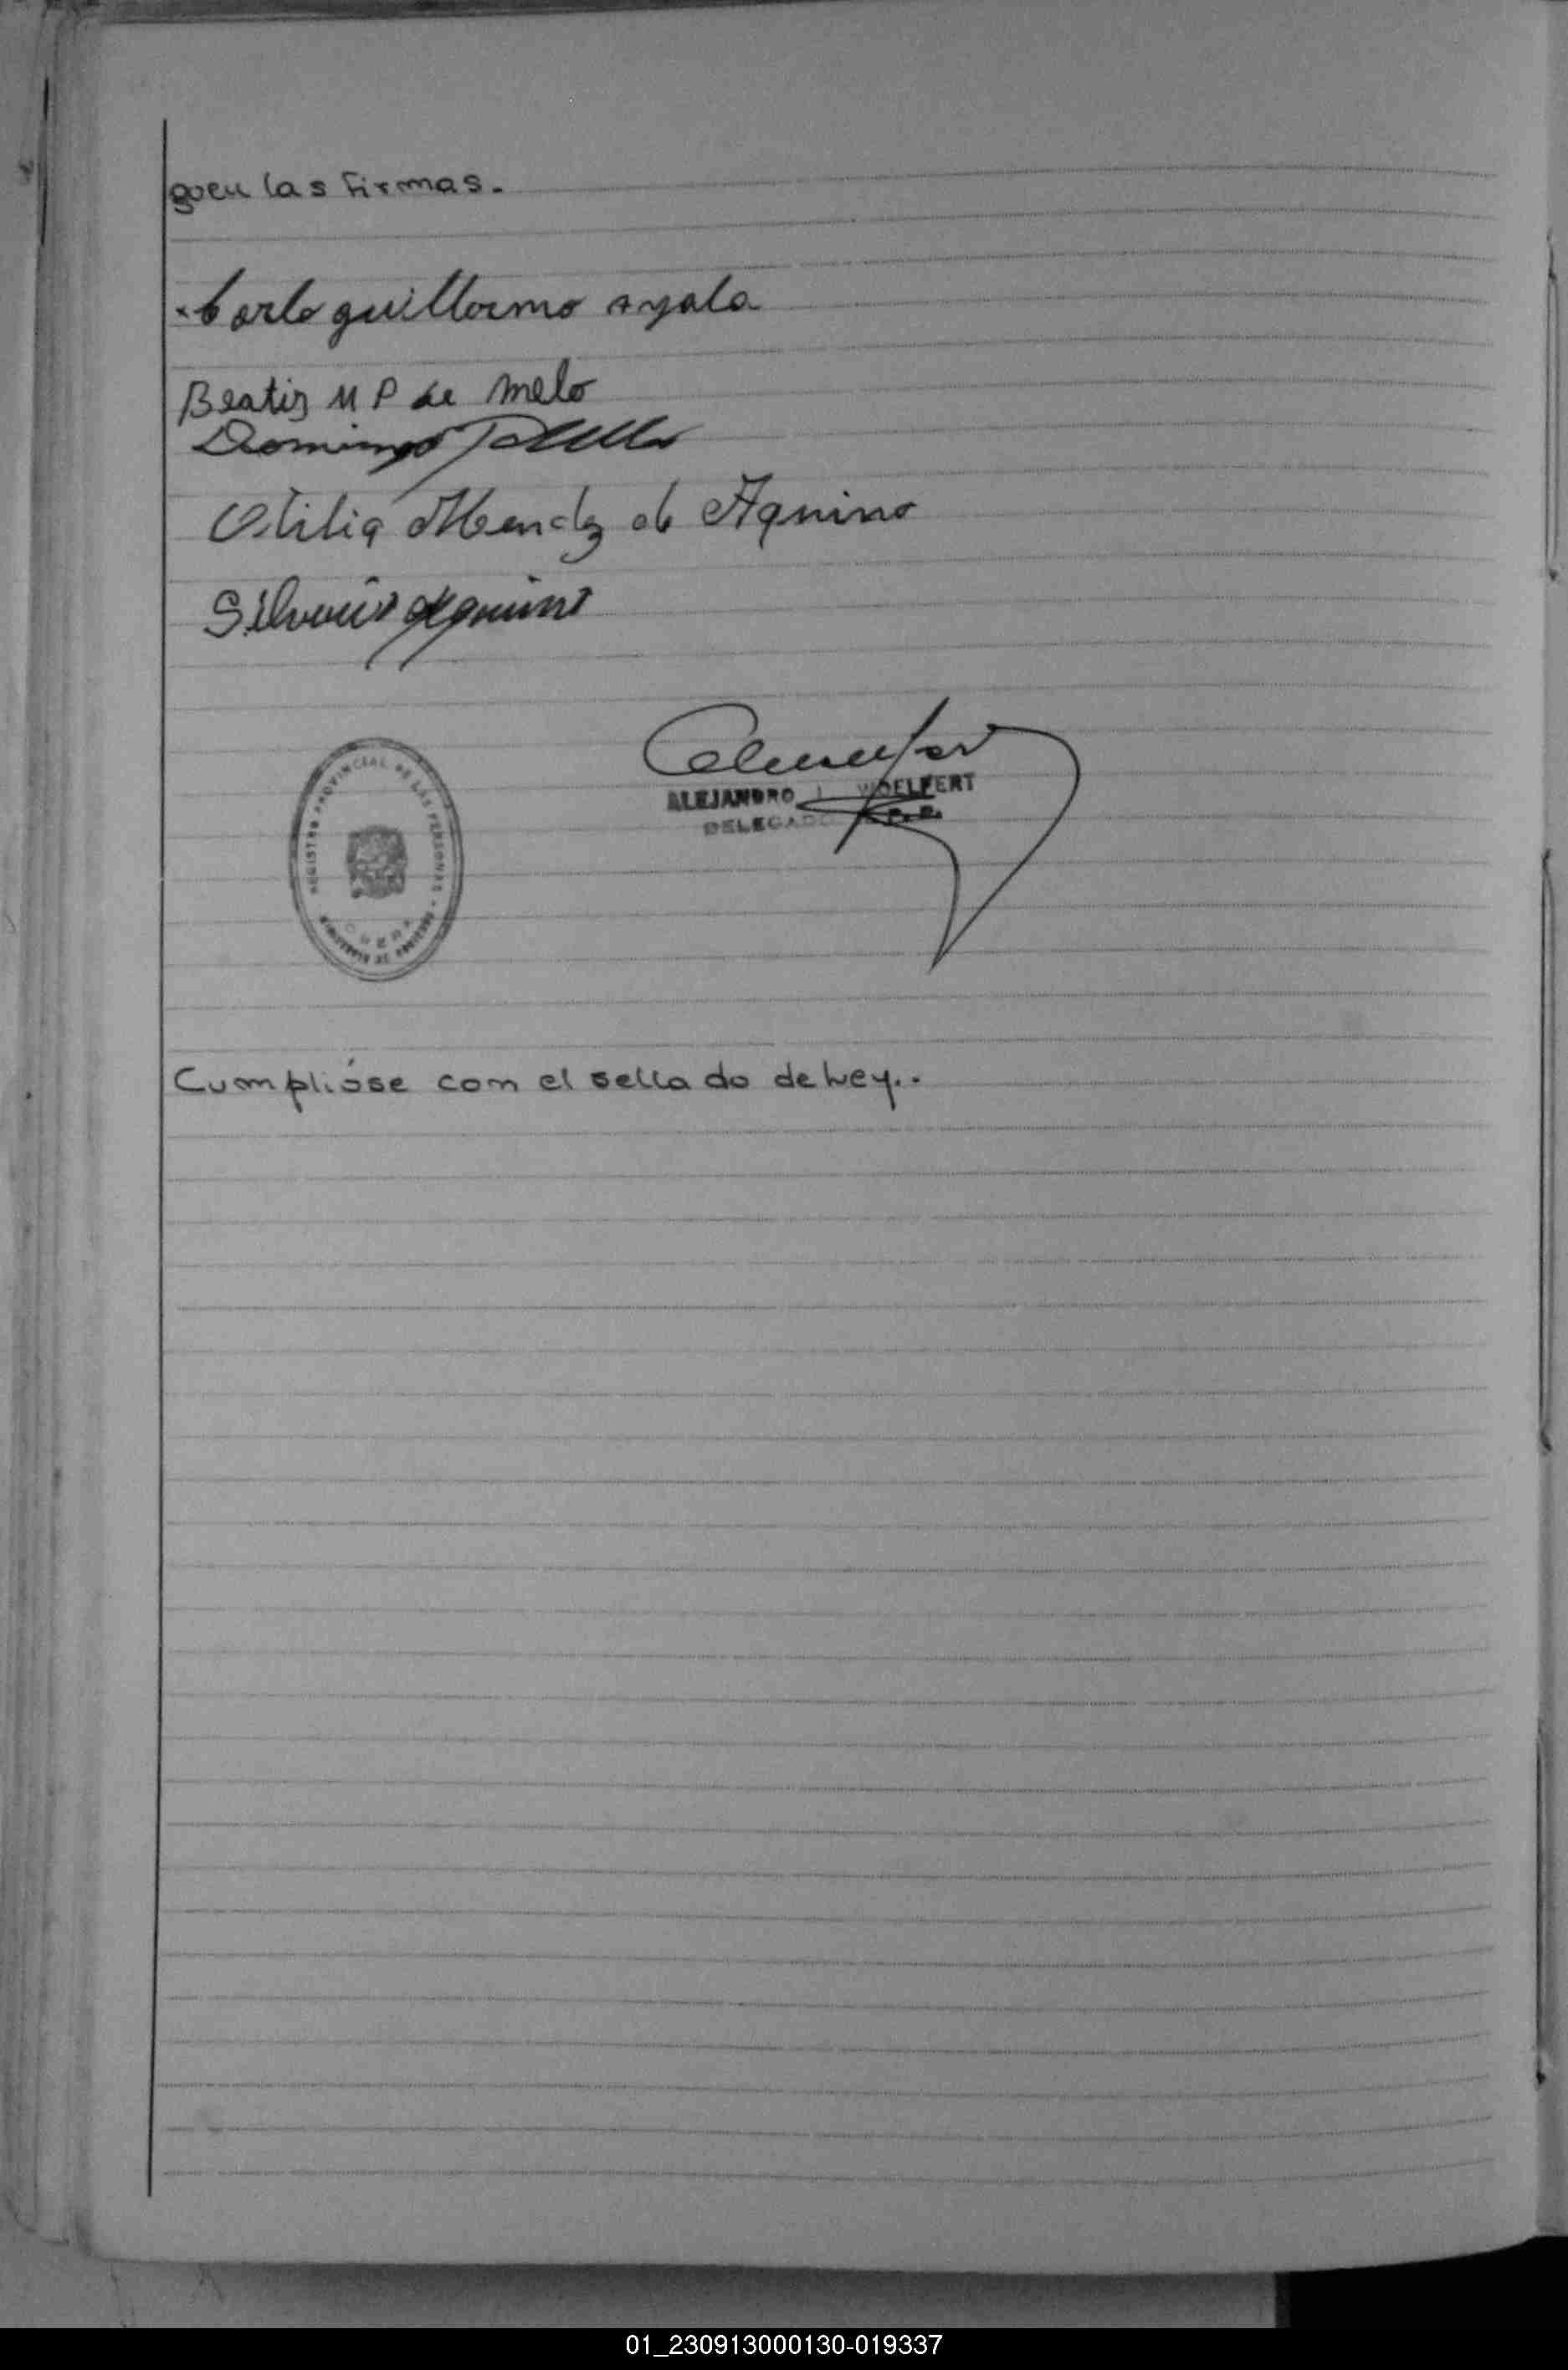 guen las firmas.
Carlo guillermo ayala
Beatis M P de Melo
Domingo
Otilia Mendz de Aquino
Silverio Aquino
REGISTRO PROVINCIAL DE LAS PERSONAS
OBERA
ALEJANDRO L. WOELFERT
DELEGADO R.P.P.
Cumplióse con el sellado de Ley..
01_230913000130-019337